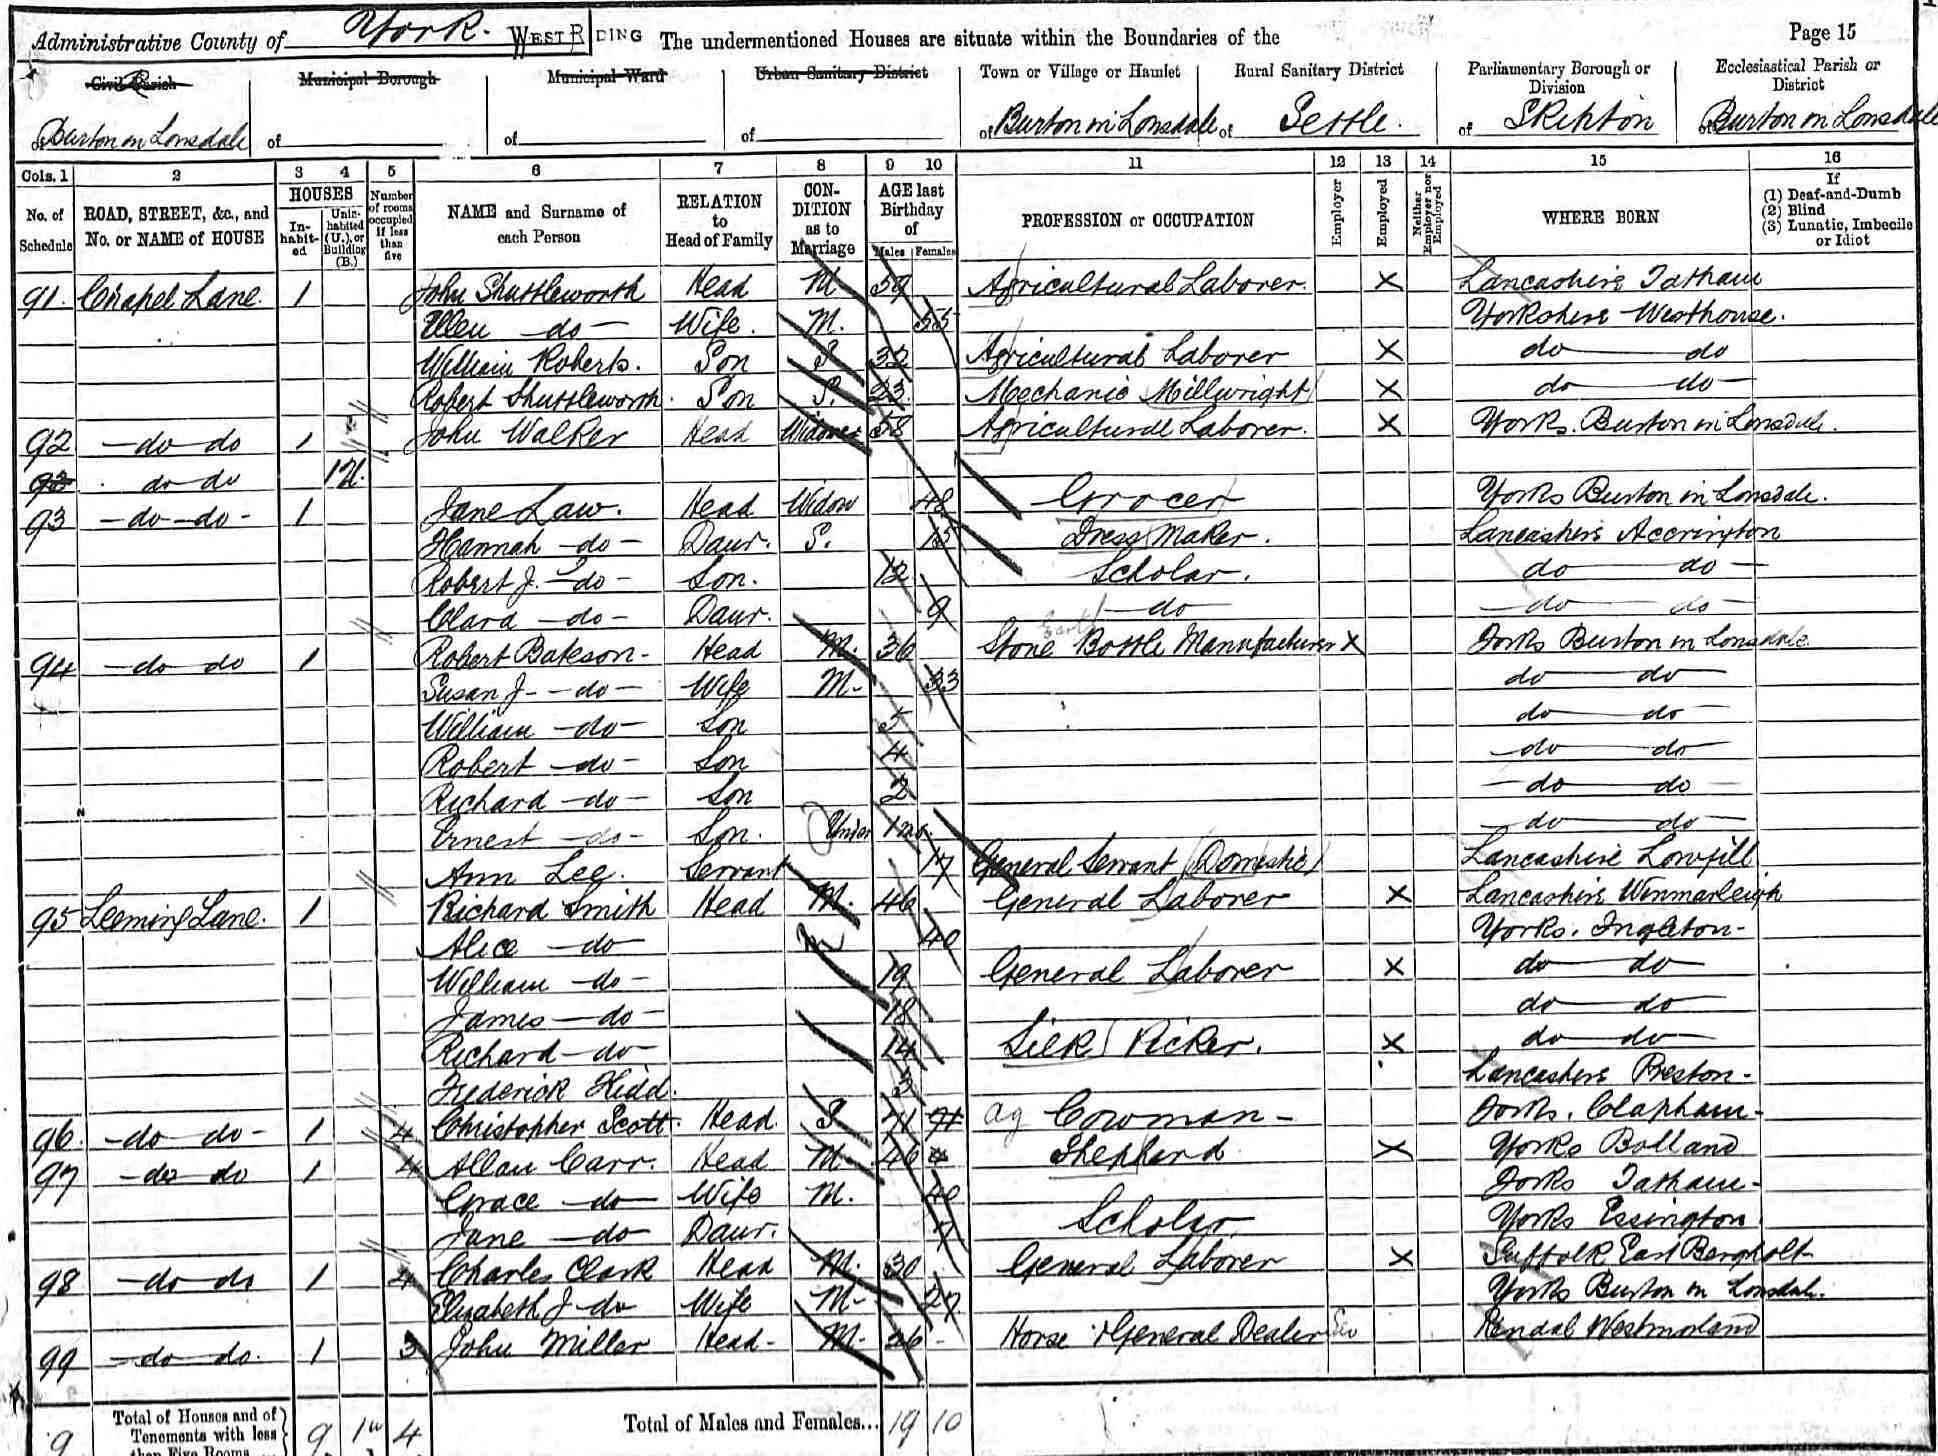 Administrative County of York. WEST RIDING The undermentioned Houses are situate within the Boundaries of the Page 15
Civil Parish Municipal Borough Municipal Ward Urban Sanitary District Town or Village or Hamlet Rural Sanitary District Parliamentary Borough or Division Ecclesiastical Parish or District
of Burton in Lonsdale of of of of Burton in Lonsdale of Settle. of Skipton of Burton in Lonsdale
Cols. 1 2 3 4 5 6 7 8 9 10 11 12 13 14 15 16
No. of Schedule ROAD, STREET, &c., and No. or NAME of HOUSE HOUSES Inhabited Uninhabited (U.), or Building (B.) Number of rooms occupied if less than five NAME and Surname of each Person RELATION to Head of Family CONDITION as to Marriage AGE last Birthday of Males Females PROFESSION or OCCUPATION Employer Employed Neither Employer nor Employed WHERE BORN If (1) Deaf-and-Dumb (2) Blind (3) Lunatic, Imbecile or Idiot
91. Chapel Lane. 1 John Shuttleworth Head M 59 Agricultural Laborer. X Lancashire Tatham
Ellen -do- Wife. M. 55 Yorkshire Westhouse.
William Roberts. Son S 32 Agricultural Laborer X do do
Robert Shuttleworth. Son S. 23 Mechanic Millwright X do do
92 -do do 1 John Walker Head Widower 58 Agricultural Laborer. X Yorks. Burton in Lonsdale.
93 do do 1 U.
93 -do-do- 1 Jane Law. Head Widow 48 Grocer Yorks Burton in Lonsdale.
Hannah -do- Daur. S. 15 Dress Maker. Lancashire Accrington
Robert J. -do- Son. 12 Scholar. do do
Clara -do- Daur. 9 -do -do do-
94 -do do 1 Robert Bateson- Head M. 36 Stone Bottle Manufacturer X Yorks Burton in Lonsdale
Susan J- -do- Wife M- 33 do do
William -do- Son 5 do do
Robert -do- Son 4 do do
Richard -do- Son 2 do do
Ernest -do- Son. Under 1 mo. do do
Ann Lee. Servant 17 General Servant (Domestic) Lancashire Lowfill
95 Leeming Lane. 1 Richard Smith Head M. 46 General Laborer X Lancashire Winmarleigh
Alice -do M 40 Yorks. Ingleton-
William -do- 19 General Laborer X do do
James -do- 18 do do
Richard -do- 14 Silk Picker. X do do
Frederick Kidd. 3 Lancashire Preston-
96. -do do- 1 4 Christopher Scott. Head. S 41 41 ag Cowman- Yorks. Clapham-
97 -do do 1 4 Allan Carr. Head M- 46 Shepherd X Yorks Bolland
Grace -do- Wife M. 40 Yorks Tatham-
Jane -do Daur. 7 Scholar Yorks Essington
98 -do do 1 4 Charles Clark Head M. 30 General Laborer X Suffolk East Bergholt
Elizabeth J -do Wife M- 27 Yorks Burton in Lonsdale.
99 -do do. 1 3 John Miller Head- M- 26 Horse & General Dealer Kendal Westmorland
9 Total of Houses and of Tenements with less than Five Rooms 9 1u 4 Total of Males and Females... 19 10